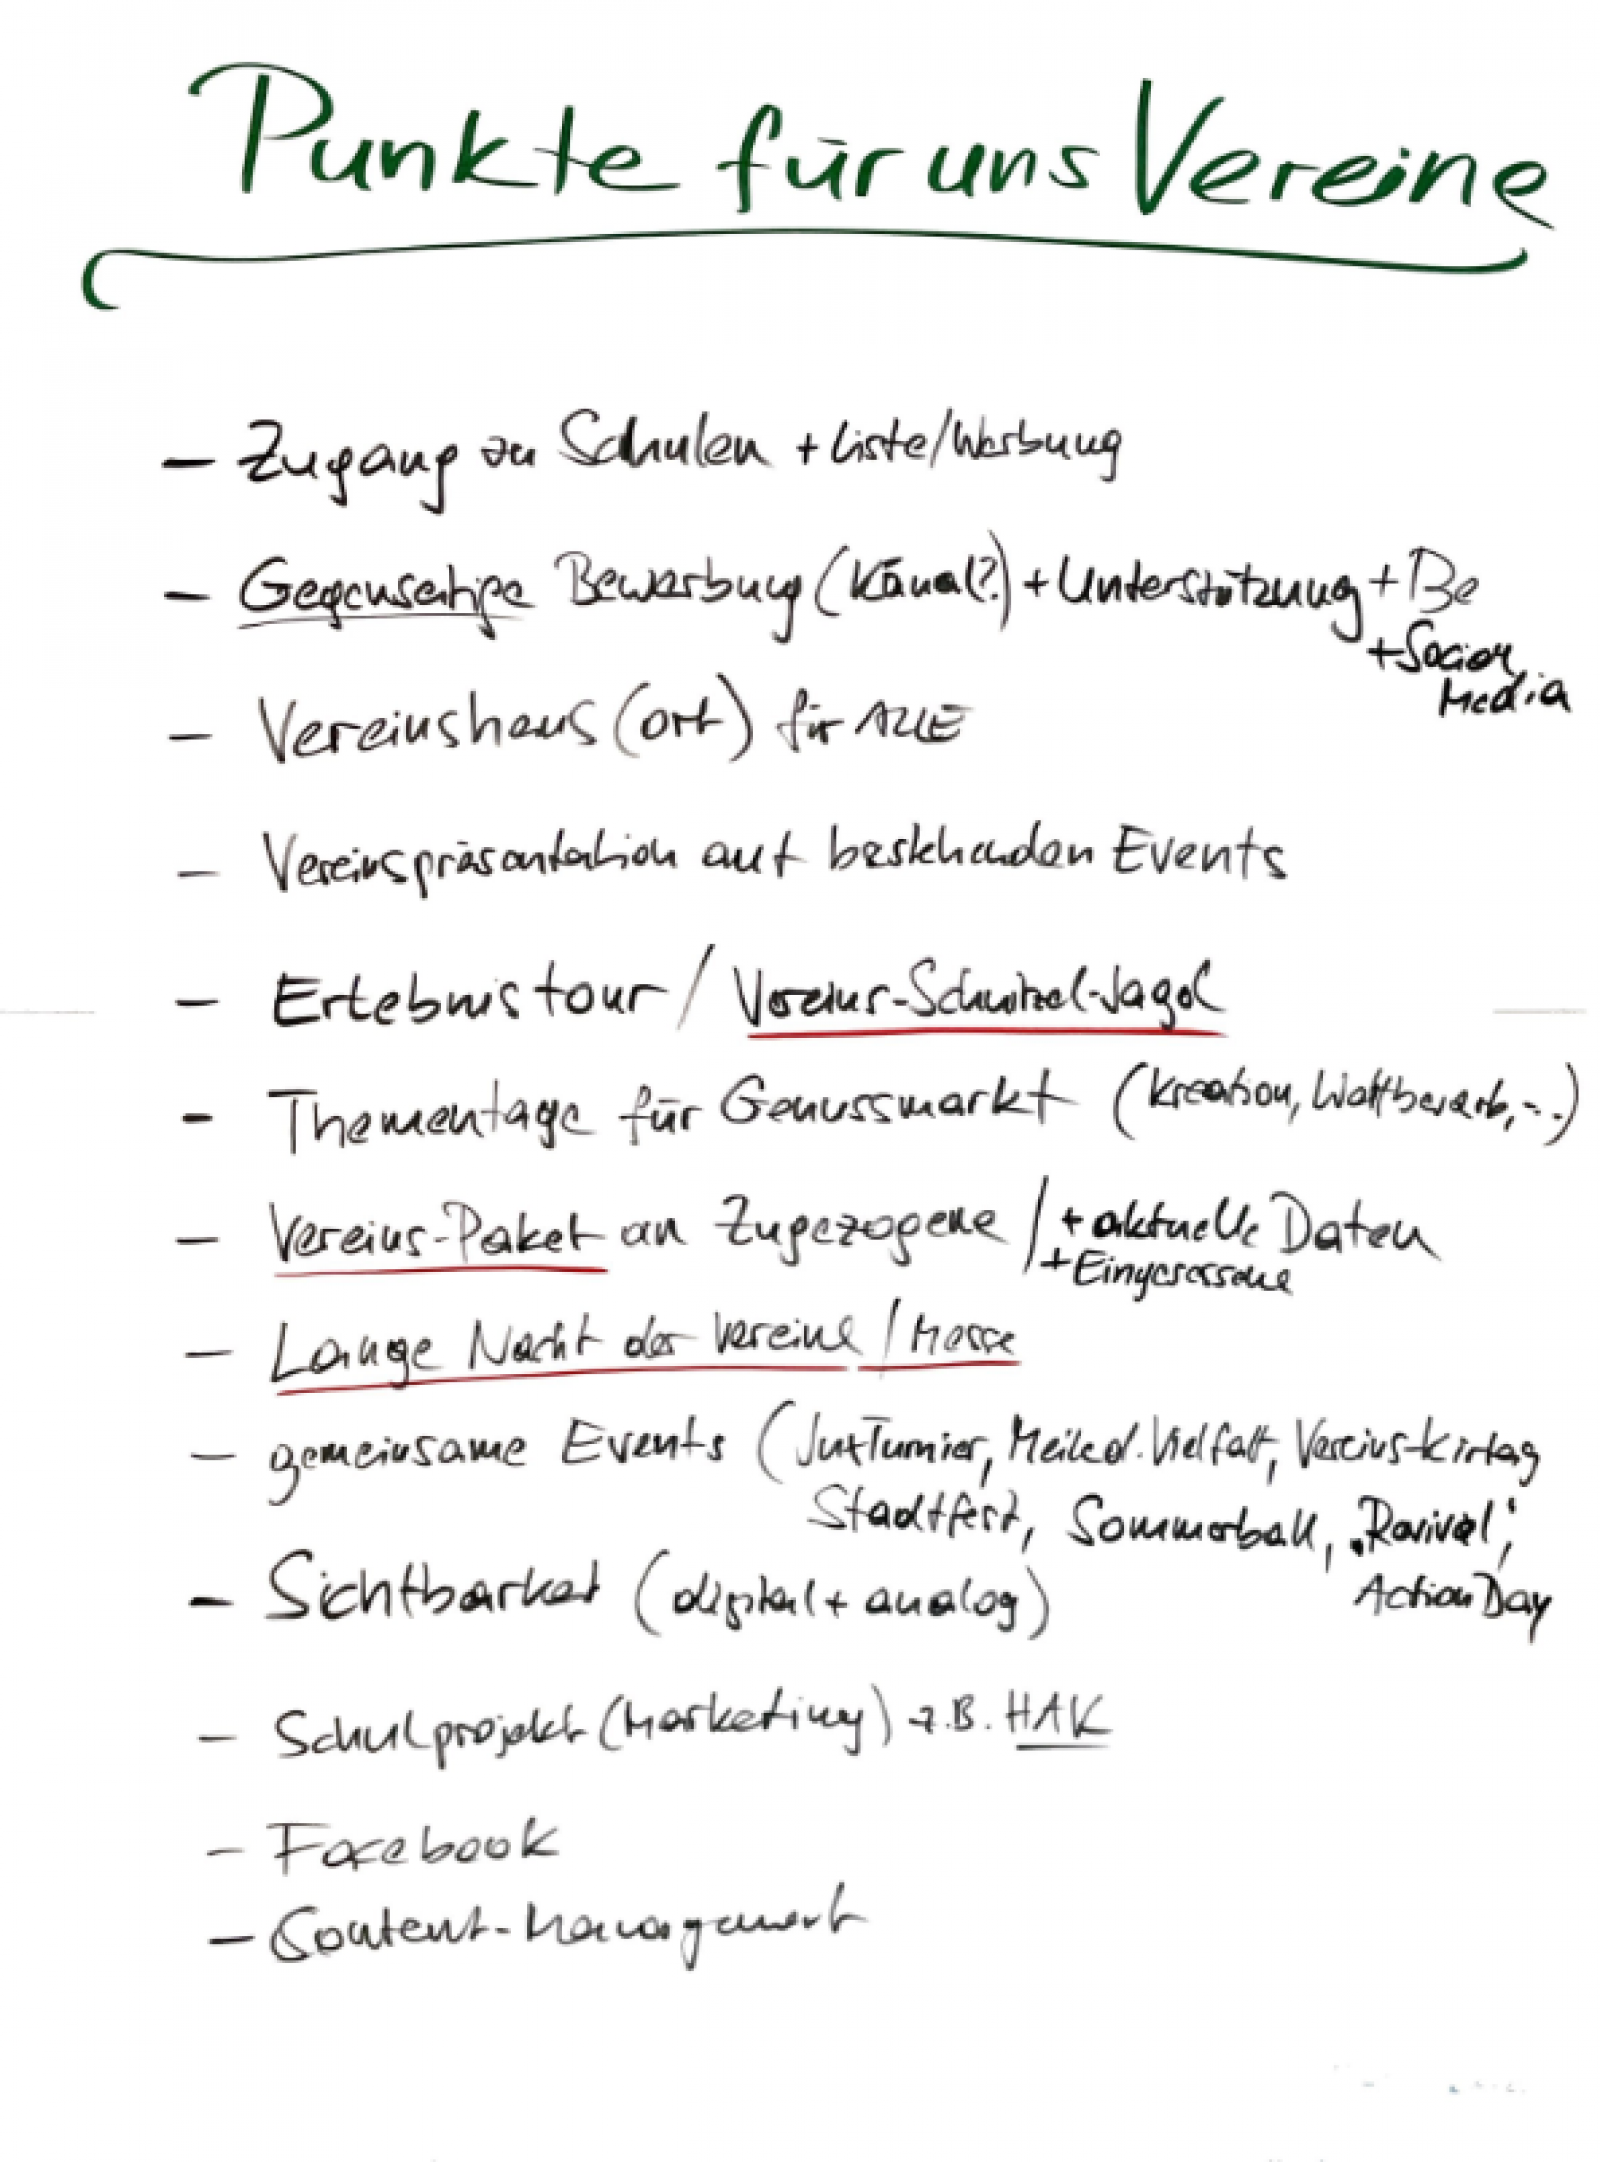 Punkte für uns Vereine
- Zugang zu Schulen + Liste/Werbung
- Gegenseitige Bewerbung (Kanal?) + Unterstützung + Be
+ Social
Media
- Vereinshaus (ort) für ALLE
- Vereinspräsentation auf bestehenden Events
- Erlebnistour / Vereins-Schnitzel-Jagd
- Thementage für Genussmarkt (Kreation, Wettbewerb, ...)
- Vereins-Paket an Zugezogene / + aktuelle Daten
+ Eingesessene
- Lange Nacht der Vereine / Messe
- gemeinsame Events (JuxTurnier, Meile d. Vielfalt, Vereins-Kirtag
Stadtfest, Sommerball, "Revival",
Action Day
- Sichtbarkeit (digital + analog)
- Schulprojekt (Marketing) z.B. HAK
- Facebook
- Content-Management